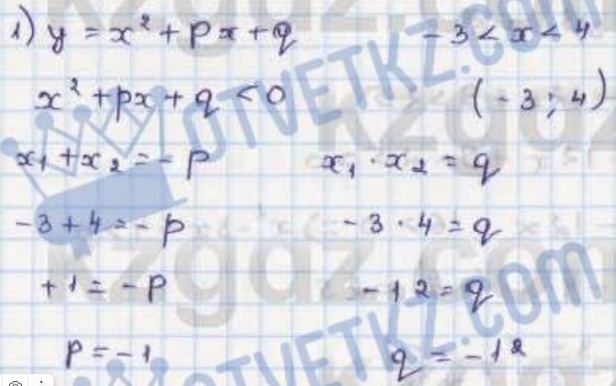 1) y = x² + px + q    -3 < x < 4
x² + px + q < 0    (-3; 4)
x₁ + x₂ = -p    x₁ · x₂ = q
-3 + 4 = -p    -3 · 4 = q
+1 = -p    -12 = q
p = -1    q = -12
OTVETKZ.COM
kzgdz.com
OTVETKZ.COM